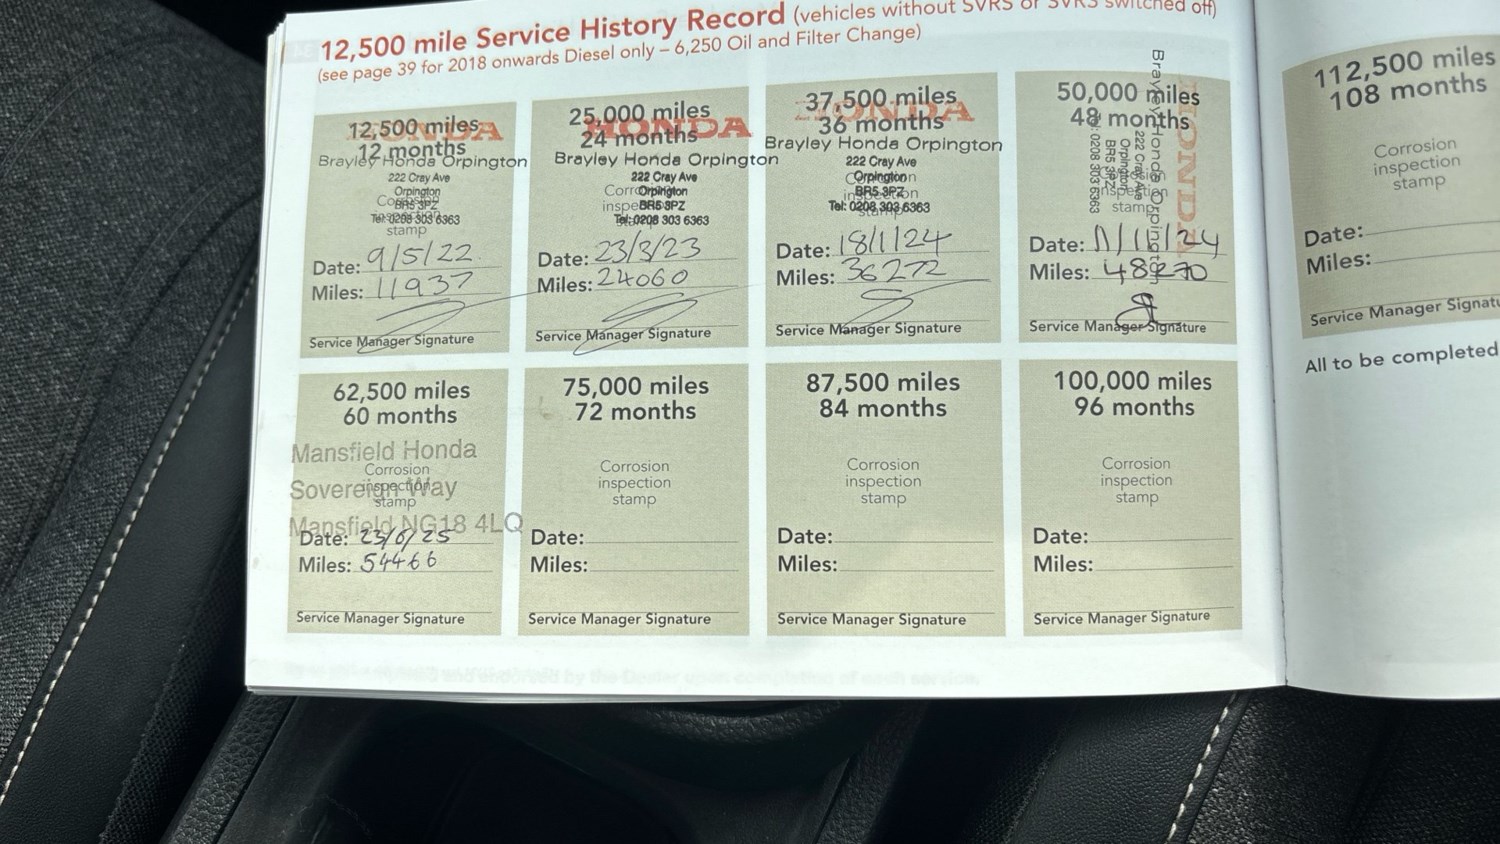 12,500 mile Service History Record (vehicles without SVRS or SVRS switched off)
(see page 39 for 2018 onwards Diesel only – 6,250 Oil and Filter Change)
HONDA
12,500 miles
12 months
Brayley Honda Orpington
222 Cray Ave
Orpington
BR5 3PZ
Tel: 0208 303 6363
Corrosion
inspection
stamp
Date: 9/5/22
Miles: 11937
Service Manager Signature
HONDA
25,000 miles
24 months
Brayley Honda Orpington
222 Cray Ave
Orpington
BR5 3PZ
Tel: 0208 303 6363
Corrosion
inspection
stamp
Date: 23/3/23
Miles: 24060
Service Manager Signature
HONDA
37,500 miles
36 months
Brayley Honda Orpington
222 Cray Ave
Orpington
BR5 3PZ
Tel: 0208 303 6363
Corrosion
inspection
stamp
Date: 18/1/24
Miles: 36272
Service Manager Signature
HONDA
50,000 miles
48 months
Brayley Honda Orpington
222 Cray Ave
Orpington
BR5 3PZ
Tel: 0208 303 6363
Corrosion
inspection
stamp
Date: 11/11/24
Miles:
Service Manager Signature
62,500 miles
60 months
Mansfield Honda
Sovereign Way
Mansfield NG18 4LQ
Corrosion
inspection
stamp
Date: 23/6/25
Miles: 54466
Service Manager Signature
75,000 miles
72 months
Corrosion
inspection
stamp
Date:
Miles:
Service Manager Signature
87,500 miles
84 months
Corrosion
inspection
stamp
Date:
Miles:
Service Manager Signature
100,000 miles
96 months
Corrosion
inspection
stamp
Date:
Miles:
Service Manager Signature
112,500 miles
108 months
Corrosion
inspection
stamp
Date:
Miles:
Service Manager
All to be completed